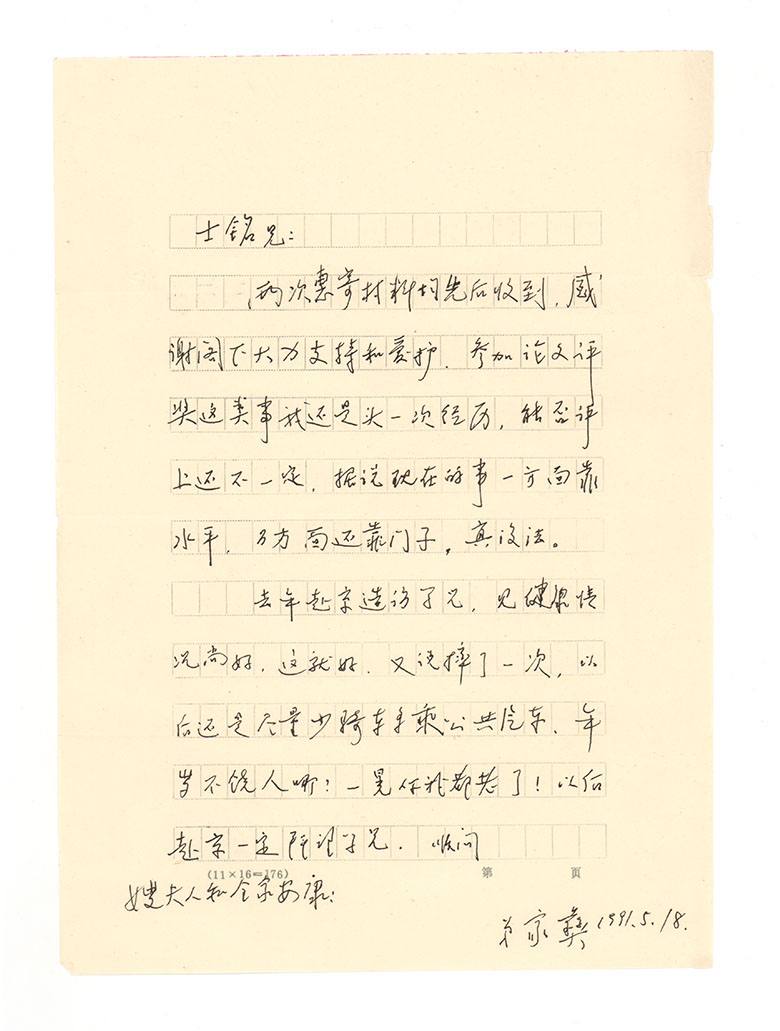 士铭兄：
两次惠寄材料均先后收到，感
谢阁下大力支持和爱护。参加论文评
奖这类事我还是头一次经历，能否评
上还不一定，据说现在的事一方面靠
水平，另方面还靠门子，真没法。
去年赴京造访了兄，见健康情
况尚好，这就好，又说摔了一次，以
后还是尽量少骑车多乘公共汽车，年
岁不饶人哪！一晃你我都老了！以后
赴京一定拜望了兄。顺问
(11×16=176) 第 页
嫂夫人和全家安康！
弟 家彝 1991.5.18.